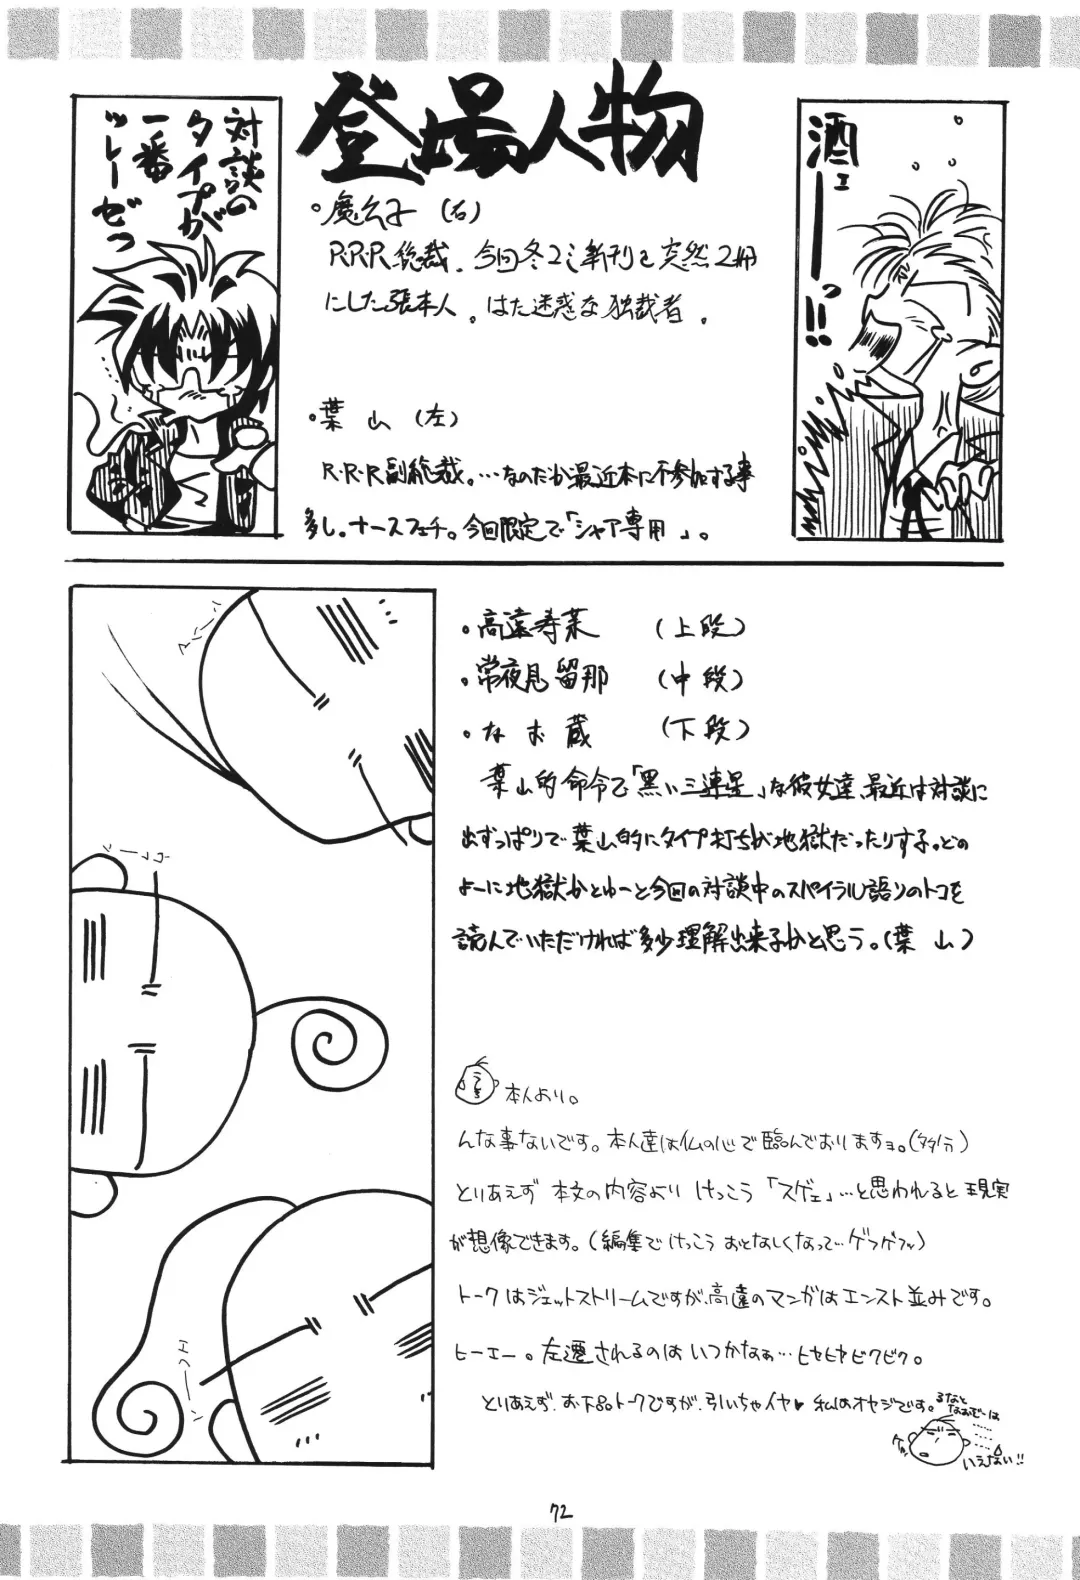 登場人物
酒ェーーーっ!!
対談の
タイプが
一番
ツレーぜっ
・魔公子(右)
R・R・R総裁。今回冬コミ新刊を突然2冊
にした張本人。はた迷惑な独裁者。
・葉山(左)
R・R・R副総裁。…なのだが最近本に不参加する事
多し。ナースフェチ。今回限定で「シャア専用」。
・高遠寿葉 (上段)
・常夜見留那 (中段)
・なお蔵 (下段)
葉山的命令で「黒い三連星」な彼女達、最近は対談に
出ずっぱりで葉山的にタイプ打ちが地獄だったりする。どの
よーに地獄かとゆーと今回の対談中のスパイラル語りのトコを
読んでいただければ多少理解出来るかと思う。(葉山)
本人より。
んな事ないです。本人達は仏の心で臨んでおりますョ。(多分)
とりあえず本文の内容よりけっこう「スゲェ」…と思われると現実
が想像できます。(編集でけっこうおとなしくなって…ゲフゲフッ)
トークはジェットストリームですが、高遠のマンガはエンスト並みです。
ヒーエー。左遷されるのはいつかなぁ…ヒヤヒヤビクビク。
とりあえず、お下品トークですが、引いちゃイヤ♥ 私はオヤジです。
るなと
なおぞーは
……
……
いえない!!
72